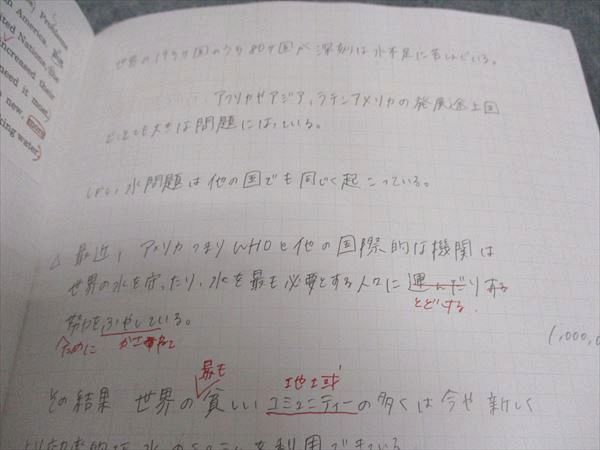 ) Professor
h America
ited Nations, the
increased their
need it most,
new,
king water
世界の199ヶ国のうち80ヶ国が深刻な水不足に苦しんでいる。
アフリカやアジア、ラテンアメリカの発展途上国
とても大きな問題になっている。
しかし、水問題は他の国でも同じく起こっている。
△ 最近、アメリカつまりWHOと他の国際的な機関は
世界の水を守ったり、水を最も必要とする人々に運んだりする
とどけする
努力をふやしている。
ために かさねて
(1,000,0
最も 地域
その結果 世界の貧しいコミュニティーの多くは今や新しく
効率的な水のシステムを利用できている。